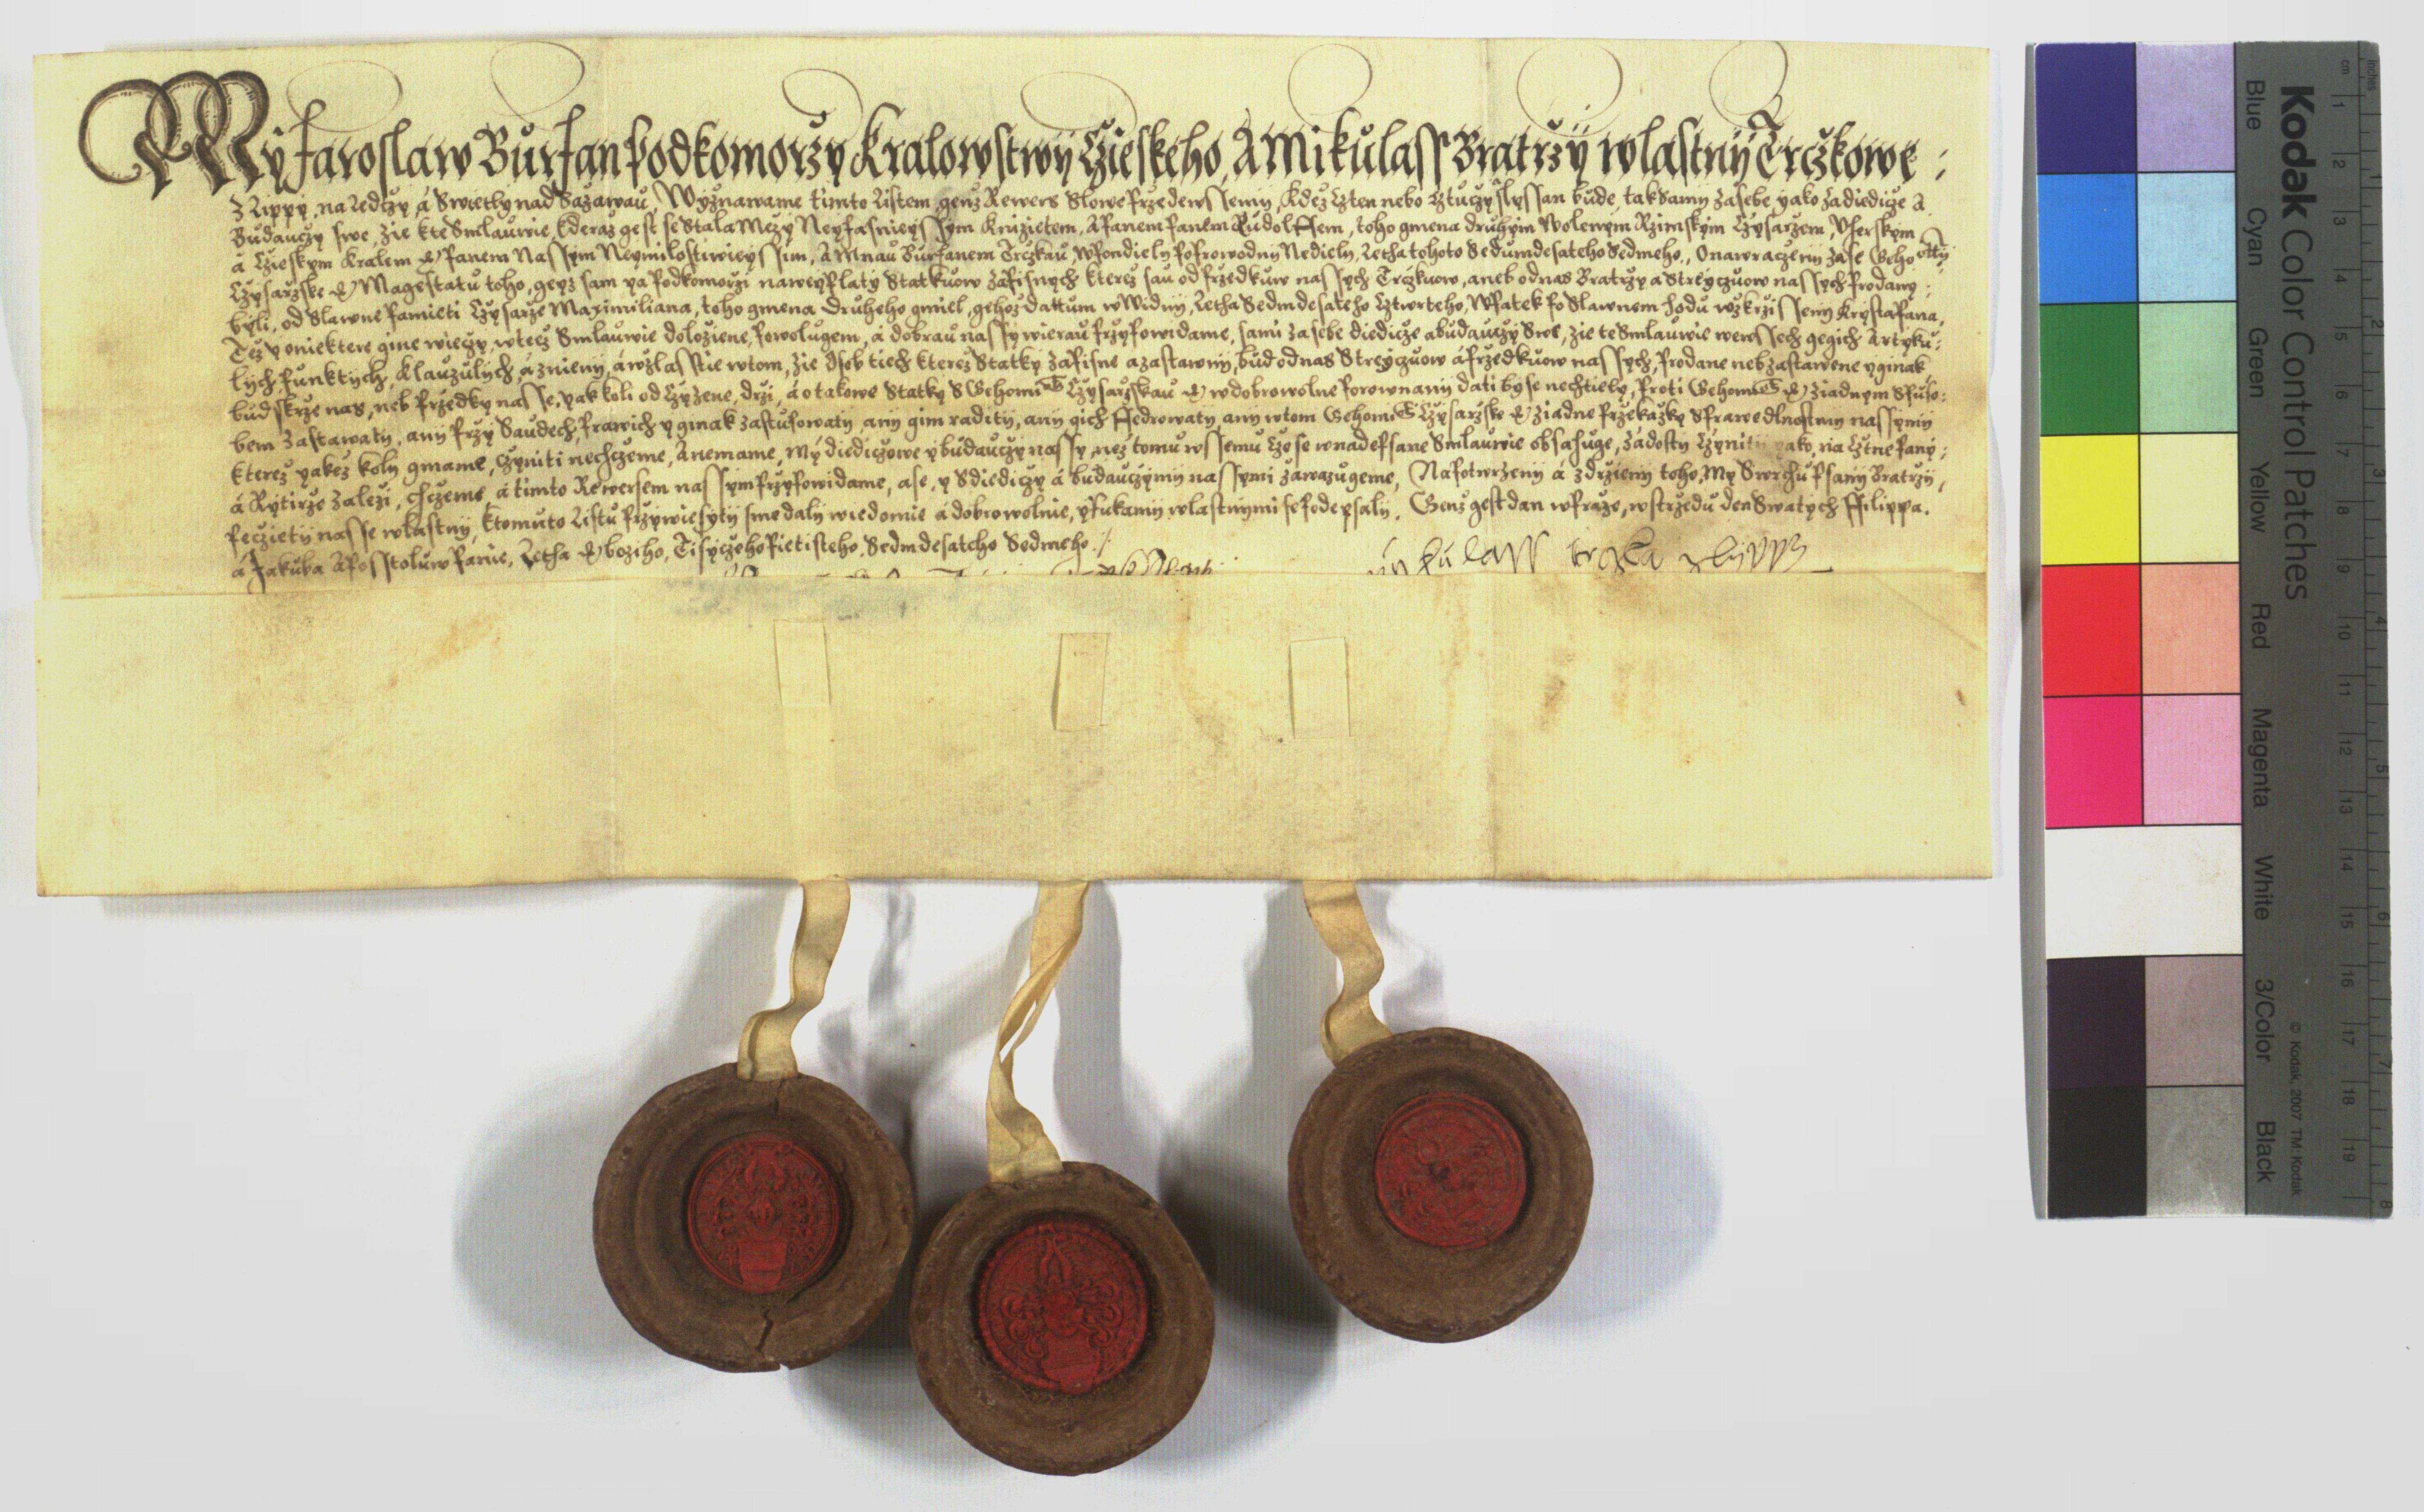 My Jaroslaw Burjan Podkomorzy Kralowstwy Czieskeho, A Mikulass Bratrzy wlastny Trczkowe :
z Lippy, na Ledczy, a Swietly nad Sazawau, Wyznawame timto Listem, genz Rewers Slowe przedewssemi, kdez czten nebo cztuczy slyssan bude, tak samy za sebe, yako za diedicze A
Budauczy swe, zie kte Smlauwie, kderaz gest se stala Mezy Neyjasnieyssym Knizietem, A Panem Panem Rudolffem, toho gmena druhym Wolenym Rzimskym Czysarzem, Uherskym
a Czieskym Kralem &c Panem Nassym Neymilostiwieyssim, A Mnau Burjanem Trczkau, W Pondiely po prowodny Nedieli, Letha tohoto Sedmdesateho Sedmeho, O nawraczeny zase Geho Mti
Czysarzske &c Magestatu toho, geyz sam ya Podkomorzi na weyplaty Statkuow zapisnych kterez sau od przedkuw nassych Trczkuow, aneb od nas Bratrzy a Streyczuow nassych prodany
byli, od Slawne pamieti Czysarze Maximiliana, toho gmena druheho gmiel, gehoz dattum w Widny, Letha Sedmdesateho cztwrteho, W Patek po Slawnem hodu wzkrzissemy Krysta Pana,
Tez y o niektere gine wieczy, w tecz Smlauwie dolozene, powolugem, a dobrau nassy wierau przypowidame, sami za sebe diedicze a budauczy Swe, zie te Smlauwie wewssech gegich Artyku:
lych, punktych, Klauzulych, a znieny, a wzlasstie w tom, zie Osob tiech kterez Statky zapisne a zastawny, bud od nas Streyczuow a przedkuow nassych, prodane neb zastawene y ginak
bud skrze nas, neb przedky nasse, yakkoli od czyzene, drzi, a o takowe Statky S Geho Mti Czysarzskau &c w dobrowolne porownany dati by se nechtiely, proti Geho Mti &c ziadnym Spuso:
bem zastawaty, any przy Saudech, Prawich y ginak zastupowaty, any gim raditi, any gich ffedrowaty, any w tom Geho Mti Czysarzske &c ziadne przekazky Sprawedlnostmy nassymy
kterez yakez koly gmame, czyniti nechczeme, A nemame, my diediczowe y budauczy nassy, nez tomu wssemu czo se w nadepsane Smlauwie obsahuge, zadosty czyniti yako na cztne pany
a Rytirze zalezi, chczeme, a timto Rewersem nassym przypowidame, a se, y S diediczy a budauczymi nassymi zawazugeme, Na potwrzeny a zdrzieny toho, My Swrchu psany Bratrzy,
peczietij nasse wlastny, k tomuto Listu przywiesyty sme daly wiedomie a dobrowolnie, y rukamy wlastnymi se podepsaly. Genz gest dan w Praze, w strzedu den Swatych Ffilippa.
a Jakuba Aposstoluw Panie, Letha &c bozího, Tisyczeho Pietisteho, Sedmdesateho Sedmeho ./.
Mikulass trczka z lyppy
Kodak Color Control Patches
Blue Cyan Green Yellow Red Magenta White 3/Color Black
© Kodak, 2007 TM: Kodak
cm 1 2 3 4 5 6 7 8 9 10 11 12 13 14 15 16 17 18 19
inches 1 2 3 4 5 6 7 8